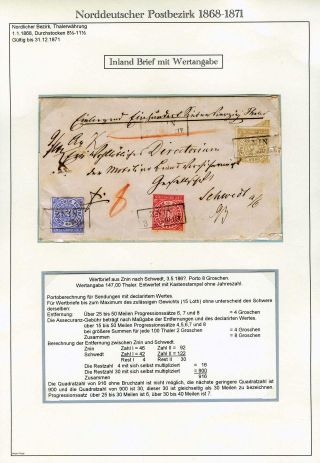 Norddeutscher Postbezirk 1868-1871
Nördlicher Bezirk, Thalerwährung
1.1.1868, Durchstochen 8½-11½
Gültig bis 31.12.1871
Inland Brief mit Wertangabe
Einliegend Ein hundert Sieben vierzig Thaler
Directorium
der Mobiliar Brand Versicherungs
Gesellschaft
Schwedt a/O
8
ZNIN
ZNIN
Wertbrief aus Znin nach Schwedt, 3.5.1867. Porto 8 Groschen.
Wertangabe 147,00 Thaler. Entwertet mit Kastenstempel ohne Jahreszahl.
Portoberechnung für Sendungen mit declarirten Werten.
Für Wertbriefe bis zum Maximum des zulässigen Gewichts (15 Loth) ohne unterscheid des Schwere
derselben:
Entfernung: Über 25 bis 50 Meilen Progressionssätze 6, 7 und 8 = 4 Groschen
Die Assecuranz-Gebühr beträgt nach Maßgabe der Entfernungen und des declarirten Werthes.
über 15 bis 50 Meilen Progressionssätze 4,5,6,7 und 8
bei größere Summen für jede 100 Thaler 2 Groschen = 4 Groschen
Zusammen = 8 Groschen
Berechnung der Entfernung zwischen Znin und Schwedt:
Znin Zahl I = 46 Zahl II = 92
Schwedt Zahl I = 42 Zahl II = 122
Rest I 4 Rest II 30
Die Restzahl 4 mit sich selbst multipliziert = 16
Die Restzahl 30 mit sich selbst multipliziert = 900
Zusammen 916
Die Quadratzahl von 916 ohne Bruchzahl ist nicht möglich, die nächste geringere Quadratzahl
von 900 ist die Zahl 30, dieser 30 ist gleichzeitig als 30 Meilen zu bezeichnen.
Progressionssatz über 25 bis 30 Meilen ist 6, über 30 bis 40 Meilen ist 7.